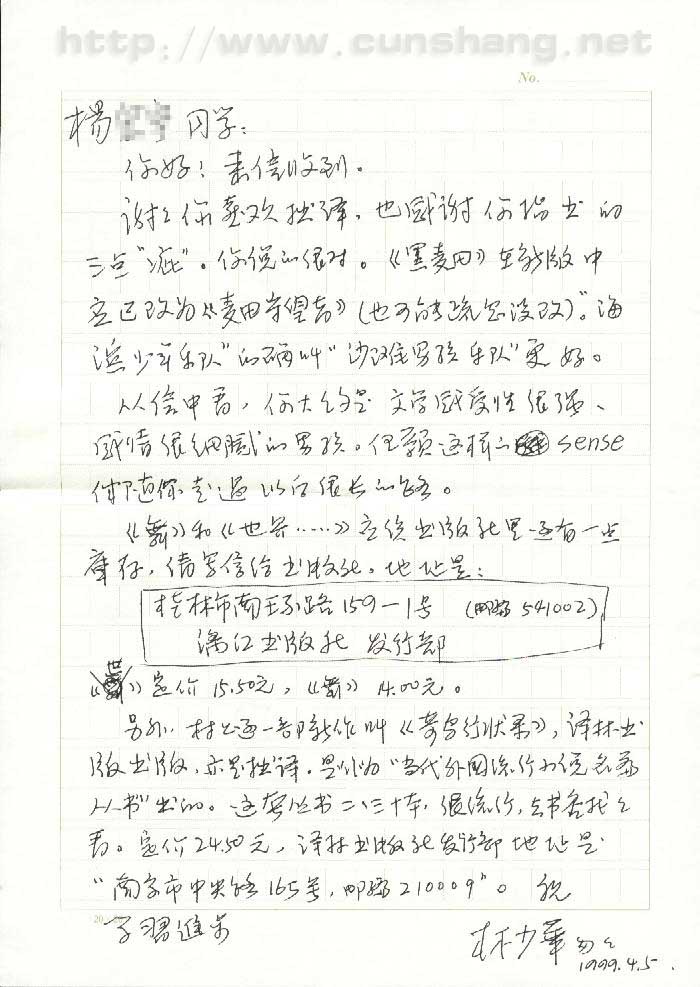 http://www.cunshang.net
No.
杨 同学：
你好！来信收到。
谢谢你喜欢拙译，也感谢你指出的
三点“疵”。你说的很对。《黑麦田》在新版中
应已改为《麦田守望者》（也可能疏忽没改）。“海
滨少年乐队”的确叫“沙滩男孩乐队”更好。
从信中看，你大约是文学感受性很强、
感情很细腻的男孩。但愿这样的 sense
伴随你走过以后很长的路。
《舞》和《世界……》应说出版社里还有一点
库存，请写信给出版社。地址是：
桂林市南环路159—1号 （邮编 541002）
漓江出版社 发行部
《世》定价 15.50元，《舞》14.00元。
另外，村上还一部新作叫《奇鸟行状录》，译林出
版出版，亦是拙译。是作为“当代外国流行小说名篇
丛书”出的。这套丛书二、三十本，很流行，去书店找找
看。定价24.50元，译林出版社发行部地址是
“南京市中央路165号，邮编210009”。祝
学习进步
林少华 匆匆
1999.4.5.
20